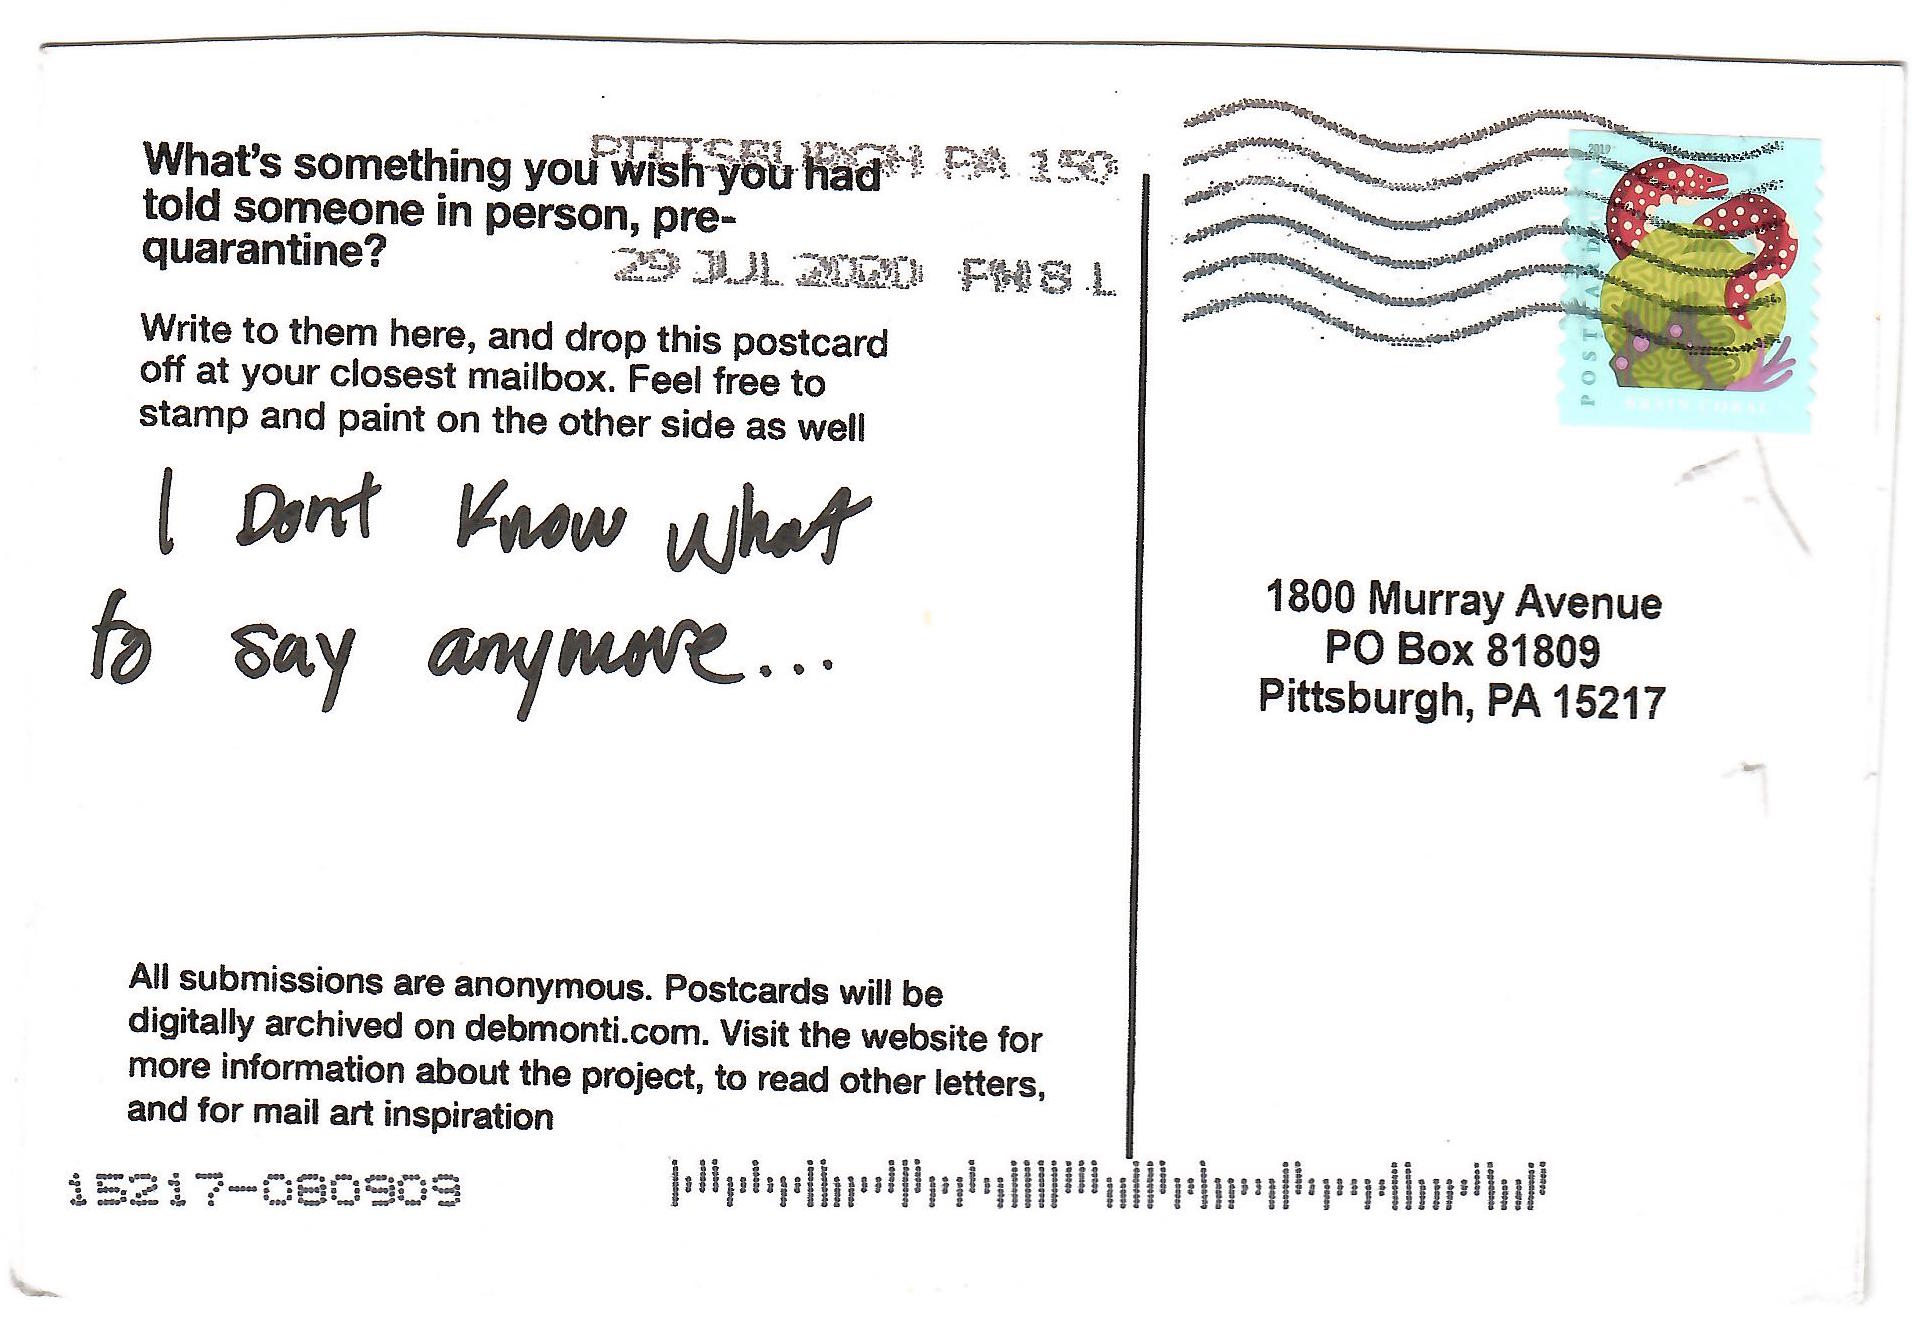 What's something you wish you had
told someone in person, pre-
quarantine?
PITTSBURGH PA 150
29 JUL 2020 PM 8 L
Write to them here, and drop this postcard
off at your closest mailbox. Feel free to
stamp and paint on the other side as well
I Dont Know what
to say anymore...
All submissions are anonymous. Postcards will be
digitally archived on debmonti.com. Visit the website for
more information about the project, to read other letters,
and for mail art inspiration
15217-080909
2019
POSTCARD
BRAIN CORAL
1800 Murray Avenue
PO Box 81809
Pittsburgh, PA 15217